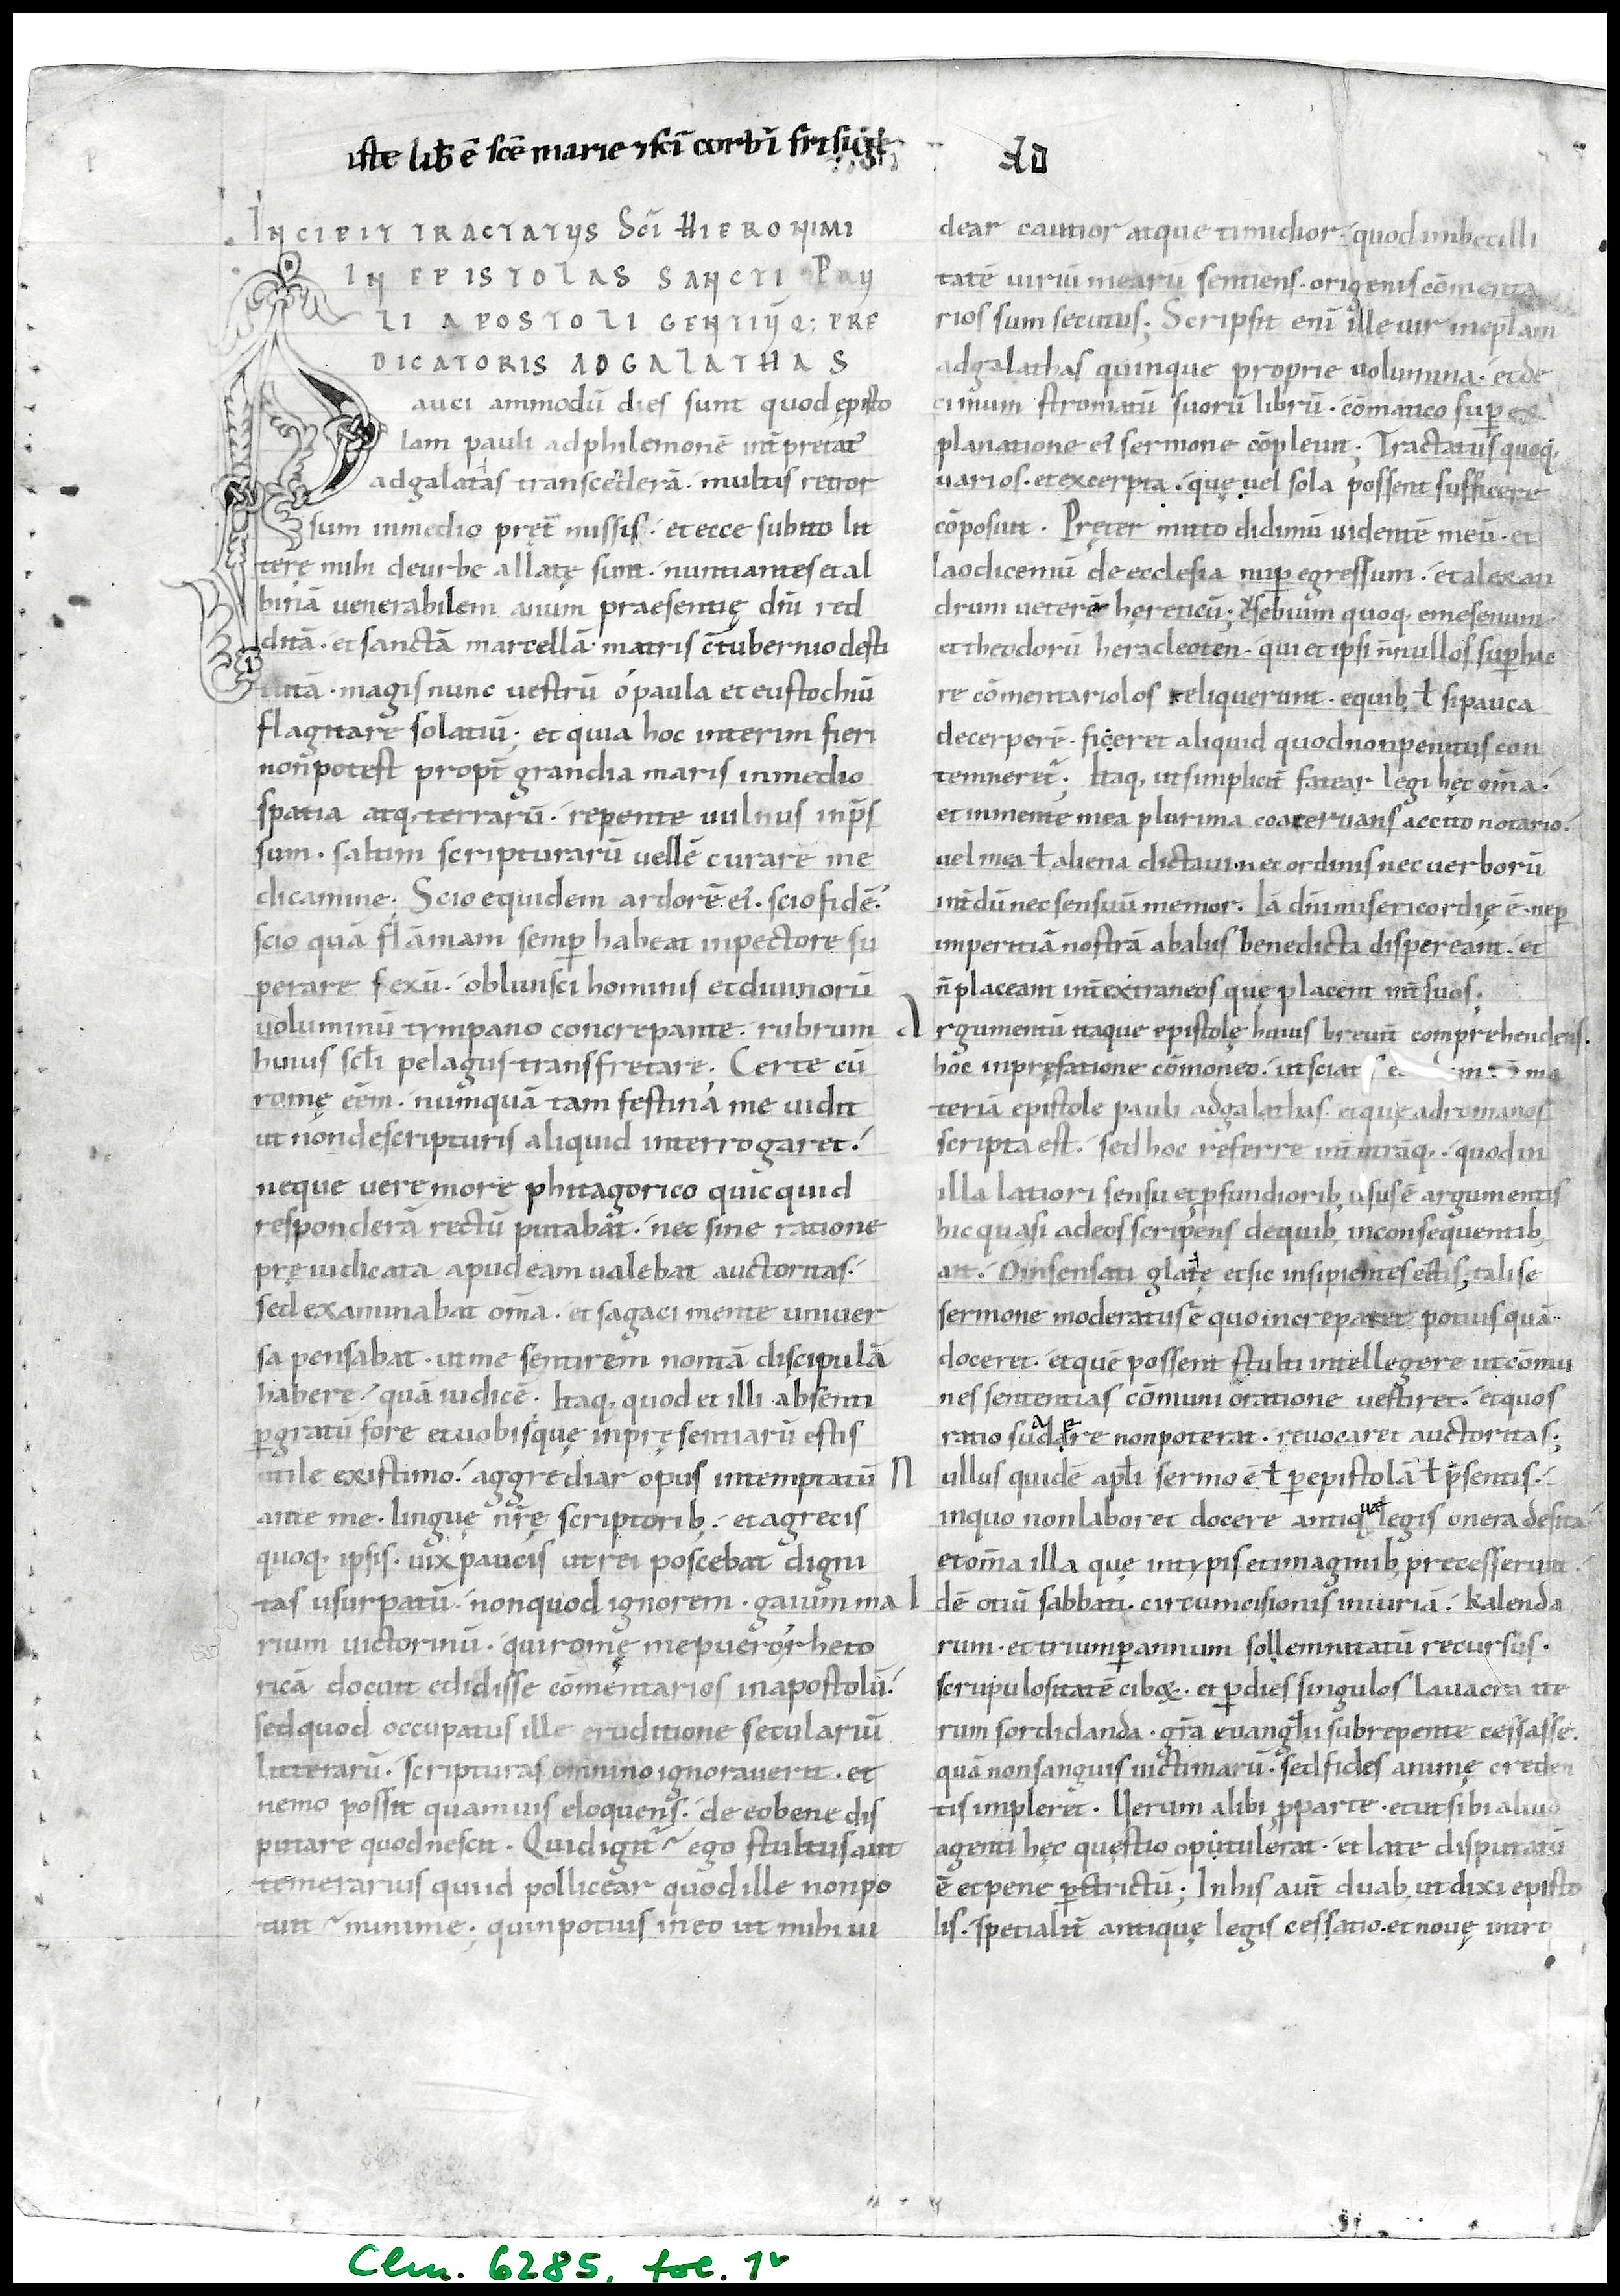 iste lib̄ ē scē marie ⁊ sc̄i corb̄i frisiḡe
INCIPIT TRACTATUS Sc̄i HIERONIMI
IN EPISTOLAS SANCTI PAU
LI APOSTOLI GENTIUQ; PRE
DICATORIS AD GALATHAS
Pauci ammodū dies sunt quod ępisto
lam pauli ad philemonē int̄pretat᷒
ad galatas transcenderā. multis retror
sum in medio pręt̄missis. et ecce subito lit
terę mihi de urbe allatę sunt. nuntiantes et al
binā venerabilem anum praesentię dn̄i red
ditā. et sanctā marcellā matris c̄tubernio desti
tutā. magis nunc vestrū o paula et eustochiū
flagitare solatiū; et quia hoc interim fieri
non potest propt̄ grandia maris in medio
spatia atq; terrarū. repente vulnus inp̄s
sum. saltim scripturarū vellē curare me
dicamine. Scio equidem ardorē ei᷒. scio fidē.
scio quā flāmam semp̄ habeat in pectore su
perare sexū. oblivisci hominis et divinorū
voluminū tympano concrepante. rubrum
huius scl̄i pelagus transfretare. Certe cū
romę eēm. numquā tam festina me vidit
ut non de scripturis aliquid interrogaret.
neque vere more phitagorico quicquid
responderā rectū putabat. nec sine ratione
pręiudicata apud eam valebat auctoritas.
sed examinabat om̄a. et sagaci mente univer
sa pensabat. ut me sentirem non tā discipulā
habere. quā iudicē. Itaq; quod et illi absenti
p̄gratū fore et vobis quę in pręsentiarū estis
utile existimo. aggrediar opus intemptatū
ante me. linguę nr̄ę scriptorib;. et a grecis
quoq; ipsis. vix paucis ut rei poscebat digni
tas usurpatū. non quod ignorem. gaium ma
rium victorinū. qui romę me puero rheto
ricā docuit edidisse cōmentarios in apostolū.
sed quod occupatus ille eruditione seculariū
litterarū. scripturas omnino ignoraverit. et
nemo possit quamvis eloquens. de eo bene dis
putare quod nescit. Quid igit᷒ ego stultus aut
temerarius qui id pollicear quod ille non po
tuit minime; quin potius in eo ut mihi vi
dear cautior atque timidior. quod imbecilli
tatē viriū mearū sentiens. origenis cōmenta
rios sum secutus; Scripsit eni ille vir in ep̄lam
ad galathas quinque proprie volumina. et de
cimum stromatū suorū librū. cōmatico sup̄ ex
planatione ei᷒ sermone cōplevit; Tractatus quoq;
varios. et excerpta. quę vel sola possent sufficere
cōposuit. Pręter mitto didimū videntē meū. et
laodicenū de ecclesia nup̄ egressum. et alexan
drum veterē hęreticū; eusebium quoq; emesenum
et theodorū heracleoten. qui et ipsi n̄nullos sup̄ hac
re cōmentariolos reliquerunt. e quib; ł si pauca
decerperē. fieret aliquid quod non penitus con
temneret᷒; Itaq; ut simplicit̄ fatear legi hęc om̄a.
et in mente mea plurima coacervans accito notario.
vel mea ł aliena dictavi. nec ordinis nec verborū
int̄dū nec sensuū memor. Iā dn̄i misericordię ē. ne p̄
imperitiā nostrā ab aliis benedicta dispereant. et
n̄ placeant int̄ extraneos quę placent int̄ suos.
Argumentū itaque epistolę huius brevit̄ comprehendens.
hoc in pręfatione cōmoneo. ut sciat ma
teriā epistole pauli ad galathas. et quę ad romanos
scripta est. sed hoc referre int̄ utrāq;. quod in
illa latiori sensu et p̄fundiorib; usus ē argumentis
hic quasi ad eos scribens de quib; in consequentib;
ait. O insensati glatę et sic insipientes estis; tali se
sermone moderatus ē quo increparet potius quā
doceret. et quē possent stulti intellegere ut cōmu
nes sententias cōmuni oratione vestiret. et quos
ratio suadere non poterat. revocaret auctoritas;
Nullus quidē apl̄i sermo ē ł p̄ epistolā ł p̄sentis.
in quo non laboret docere antiquae legis onera deposita
et om̄a illa quę in typis et imaginib; precesserunt.
idē otiū sabbati. circumcisionis iniuriā. kalenda
rum. et trium p̄ annum sollemnitatū recursus.
scrupulositatē ciboꝝ. et p̄ dies singulos lavacra ite
rum sordidanda. gr̄a evangl̄ii subrepente cessasse.
quā non sanguis victimarū. sed fides animę creden
tis impleret. Verum alibi p̄ parte. et ut sibi aliud
agenti hęc questio opitulerat. et late disputatū
ē et pene p̄strictū; In his aut̄ duab; ut dixi episto
lis. spetialit̄ antiquę legis cessatio. et novę intro
Clm. 6285, fol. 1r